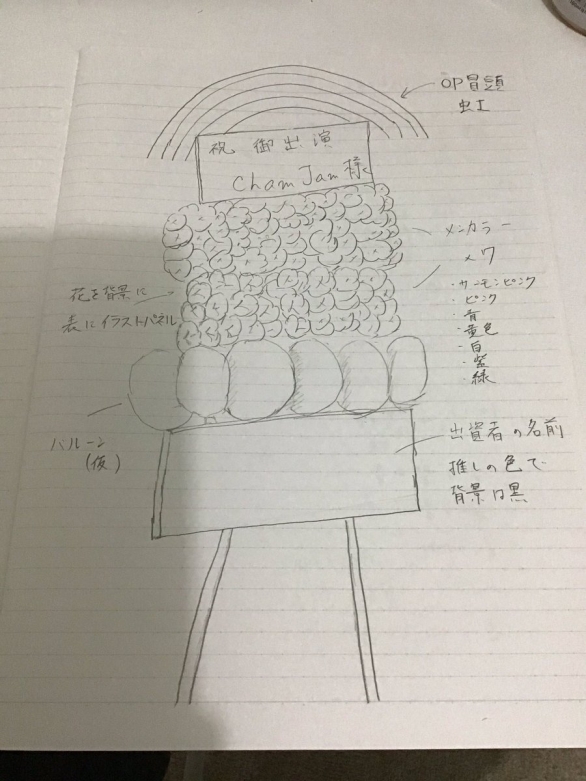 OP冒頭
虹
祝 御出演
ChamJam様
メンカラー
花を背景に
表にイラストパネル
・サーモンピンク
・ピンク
・青
・黄色
・白
・紫
緑
バルーン
(仮)
出資者の名前
推しの色で
背景は黒